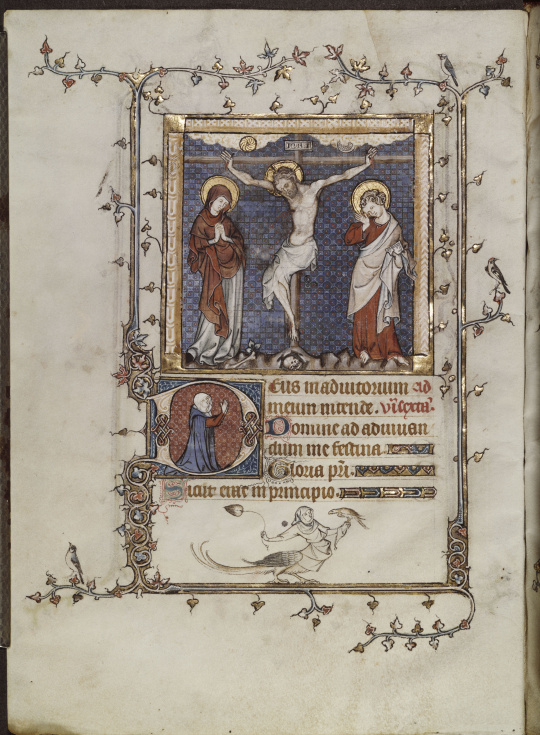 Deus in adiutorium ad
meum intende.
Domine ad adiuuan
dum me festina.
Gloria pr̄i.
Sicut erat in principio.